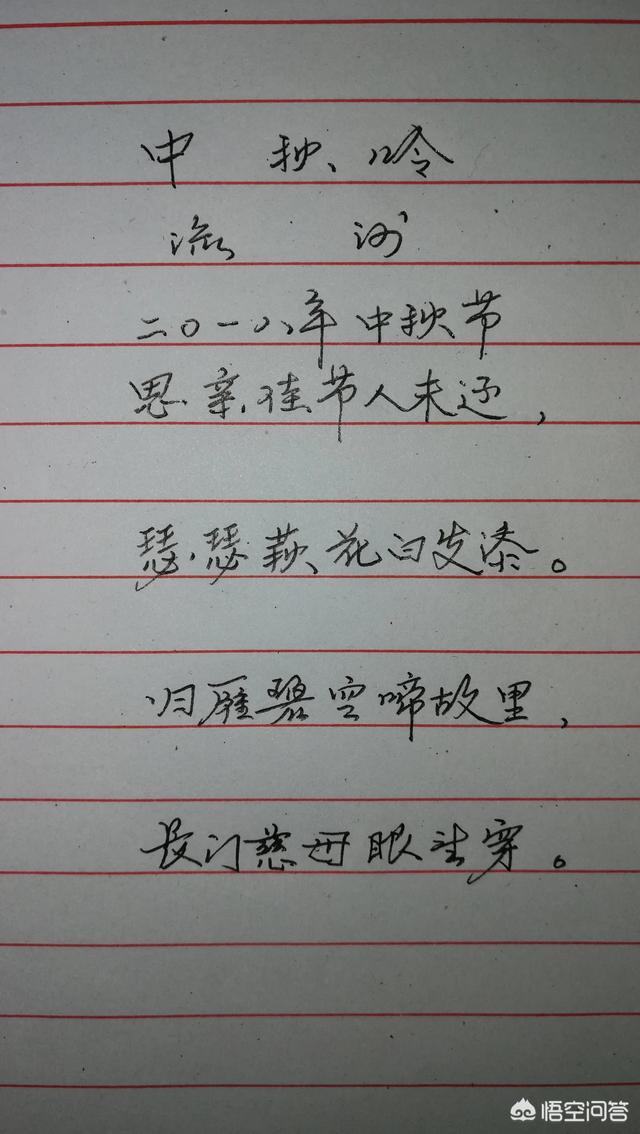 中 秋 吟
流
二〇一八年中秋节
思亲佳节人未还，
瑟瑟荻花白发添。
归雁碧空啼故里，
长门慈母眼望穿。
悟空问答